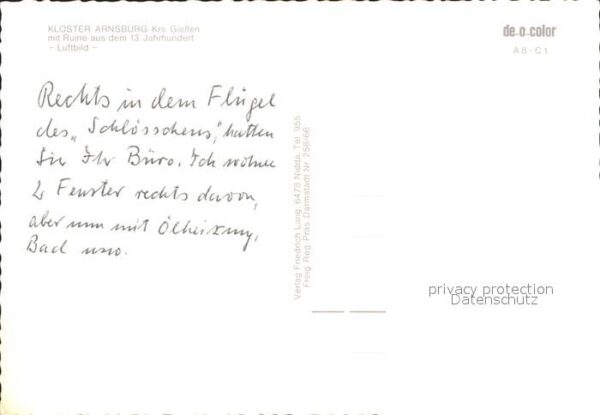 KLOSTER ARNSBURG Krs. Gießen
mit Ruine aus dem 13. Jahrhundert
- Luftbild -
de-o-color
A 8 - C 1
Rechts in dem Flügel
des „Schlösschens“, hatten
Sie Ihr Büro. Ich wohne
2 Fenster rechts davon,
aber nun mit Ölheizung,
Bad usw.
Verlag Friedrich Lung, 6478 Nidda, Tel. 955
Freig. Reg. Präs. Darmstadt Nr. 258/66
privacy protection
Datenschutz